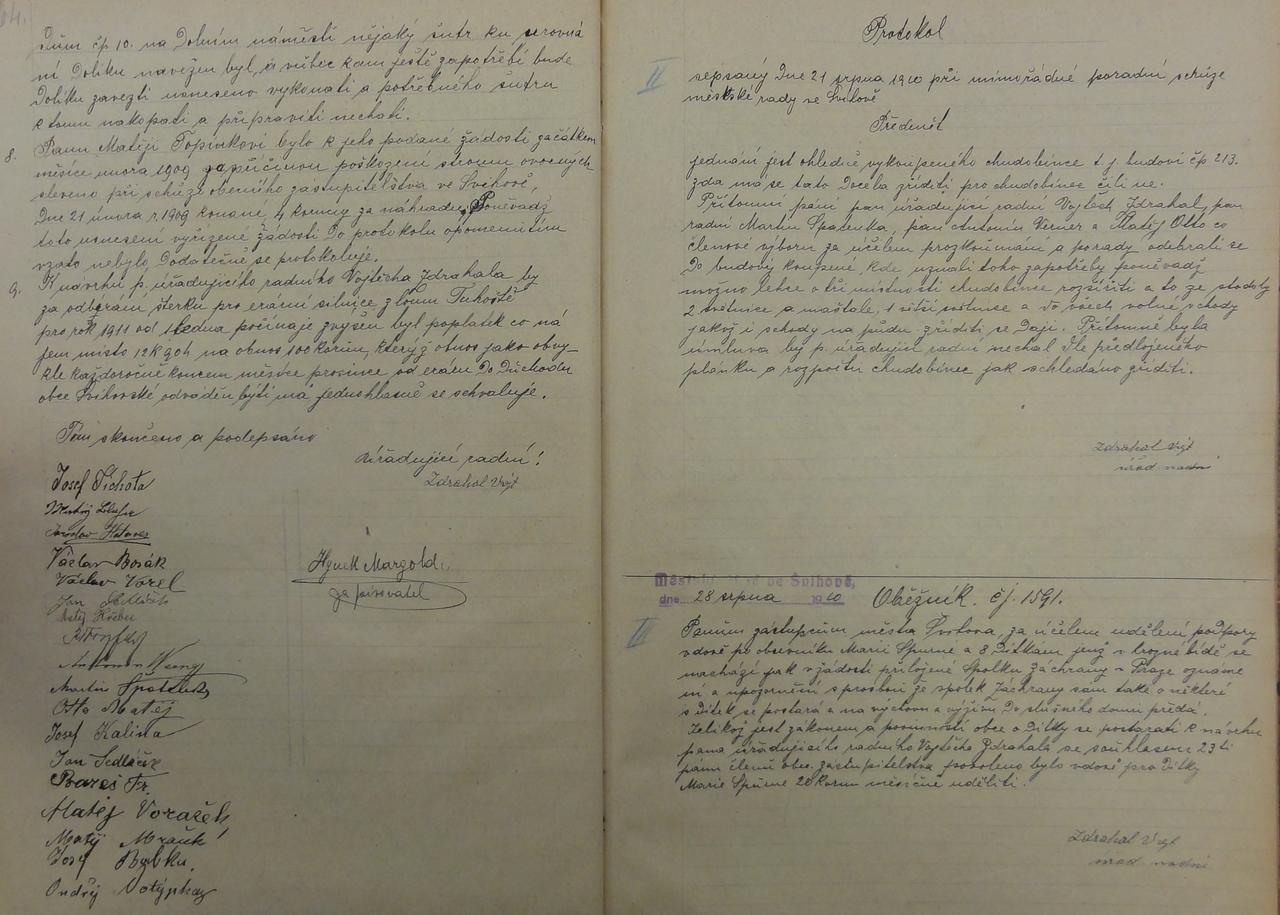 dům čp 10. na Dolním náměstí nějaký šutr ku srovná
ní Dolíku navežen byl, a vůbec kam ještě zapotřebí bude
Dolíku zavezti usneseno vykonati a potřebného šutru
k tomu nakopati a připraviti nechati.
8. Panu Matěji Topinkovi bylo k jeho podané žádosti začátkem
měsíce února 1909 příčinou poškození stromu ovocných
sleveno při schůzi obecního zastupitelstva ve Švihově,
Dne 21 února r. 1909 konané, 4 koruny za náhradu, Poněvadž
toto usnesení vyřízené žádosti Do protokolu opomenutím
vzato nebylo, Dodatečně se protokoluje.
9. K návrhu p. úřadujícího radního Vojtěcha Zdrahala by
za odbírání šterku pro erární silnice z lomu Tuhoště
pro rok 1911 od 1 ledna počínaje zvýšen byl poplatek co ná
jem místo 12 K 90 h na obnos 100 korun, kterýž obnos jako oby_
kle každoročně koncem měsíce prosince od eráru Do Důchodu
obce Švihovské odváděn býti má jednohlasně se schvaluje.
Tím skončeno a podepsáno
úřadující radní!
Zdrahal Vojt
Josef Tichota
Václav Bosák
Václav Vorel
Hynek Margold
zapisovatel
Jan Sedláček
Matěj
Antonín
Martin
Otto Matěj
Josef Kalina
Jan Sedláček
Bareš Fr.
Matěj Voráček
Matěj
Josef
Ondřej
Protokol
II sepsaný Dne 21 srpna 1910 při mimořádné poradní schůze
městské rady ve Švihově
Předmět
jednání jest ohledně vykoupeného chudobince t. j. budovi čp 213.
zda má se tato Docela zříditi pro chudobince čili ne.
Přítomni páni pan úřadující radní Vojtěch Zdrahal, pan
radní Martin Špatenka, pan Antonín Verner a Matěj Otto co
členové výboru za účelem prozkoumání a porady odebrali se
Do budovy koupené, kde uznali toho zapotřeby poněvadž
možno lehce o tři místnosti chudobince rozšířiti a to ze stodoly
2 světnice a maštale, 1 větší světnice a do všech volné vchody
jakož i schody na půdu zříditi se Dají. Přítomně byla
úmluva by p. úřadující radní nechal Dle předloženého
plánku a rozpočtu chudobinec jak shledáno zříditi.
Zdrahal Vojt
úřad radní
Městský úřad ve Švihově,
dne 28 srpna 1910 Oběžník. čj. 1591.
III Panům zástupcům města Švihova, za účelem udělení podpory
vdově po obecníku Marii Spurné a 8 Dítkám jenž v hrozné bídě se
nachází jak v žádosti přiložené Spolku Záchrany v Praze oznáme
ní a upozornění s prosbou že spolek Záchrany sám také o některé
s Dítek se postará a na výchovu a výživu Do slušného domu předá.
Jelikož jest zákonem a povinností obce o Dítky se postarati k návrhu
pana úřadujícího radního Vojtěcha Zdrahala se souhlasem 23 ti
pánů členů obec. zastupitelstva povoleno bylo vdově pro Dítky
Marie Spurné 20 korun měsíčně uděliti.
Zdrahal Vojt
úřad radní